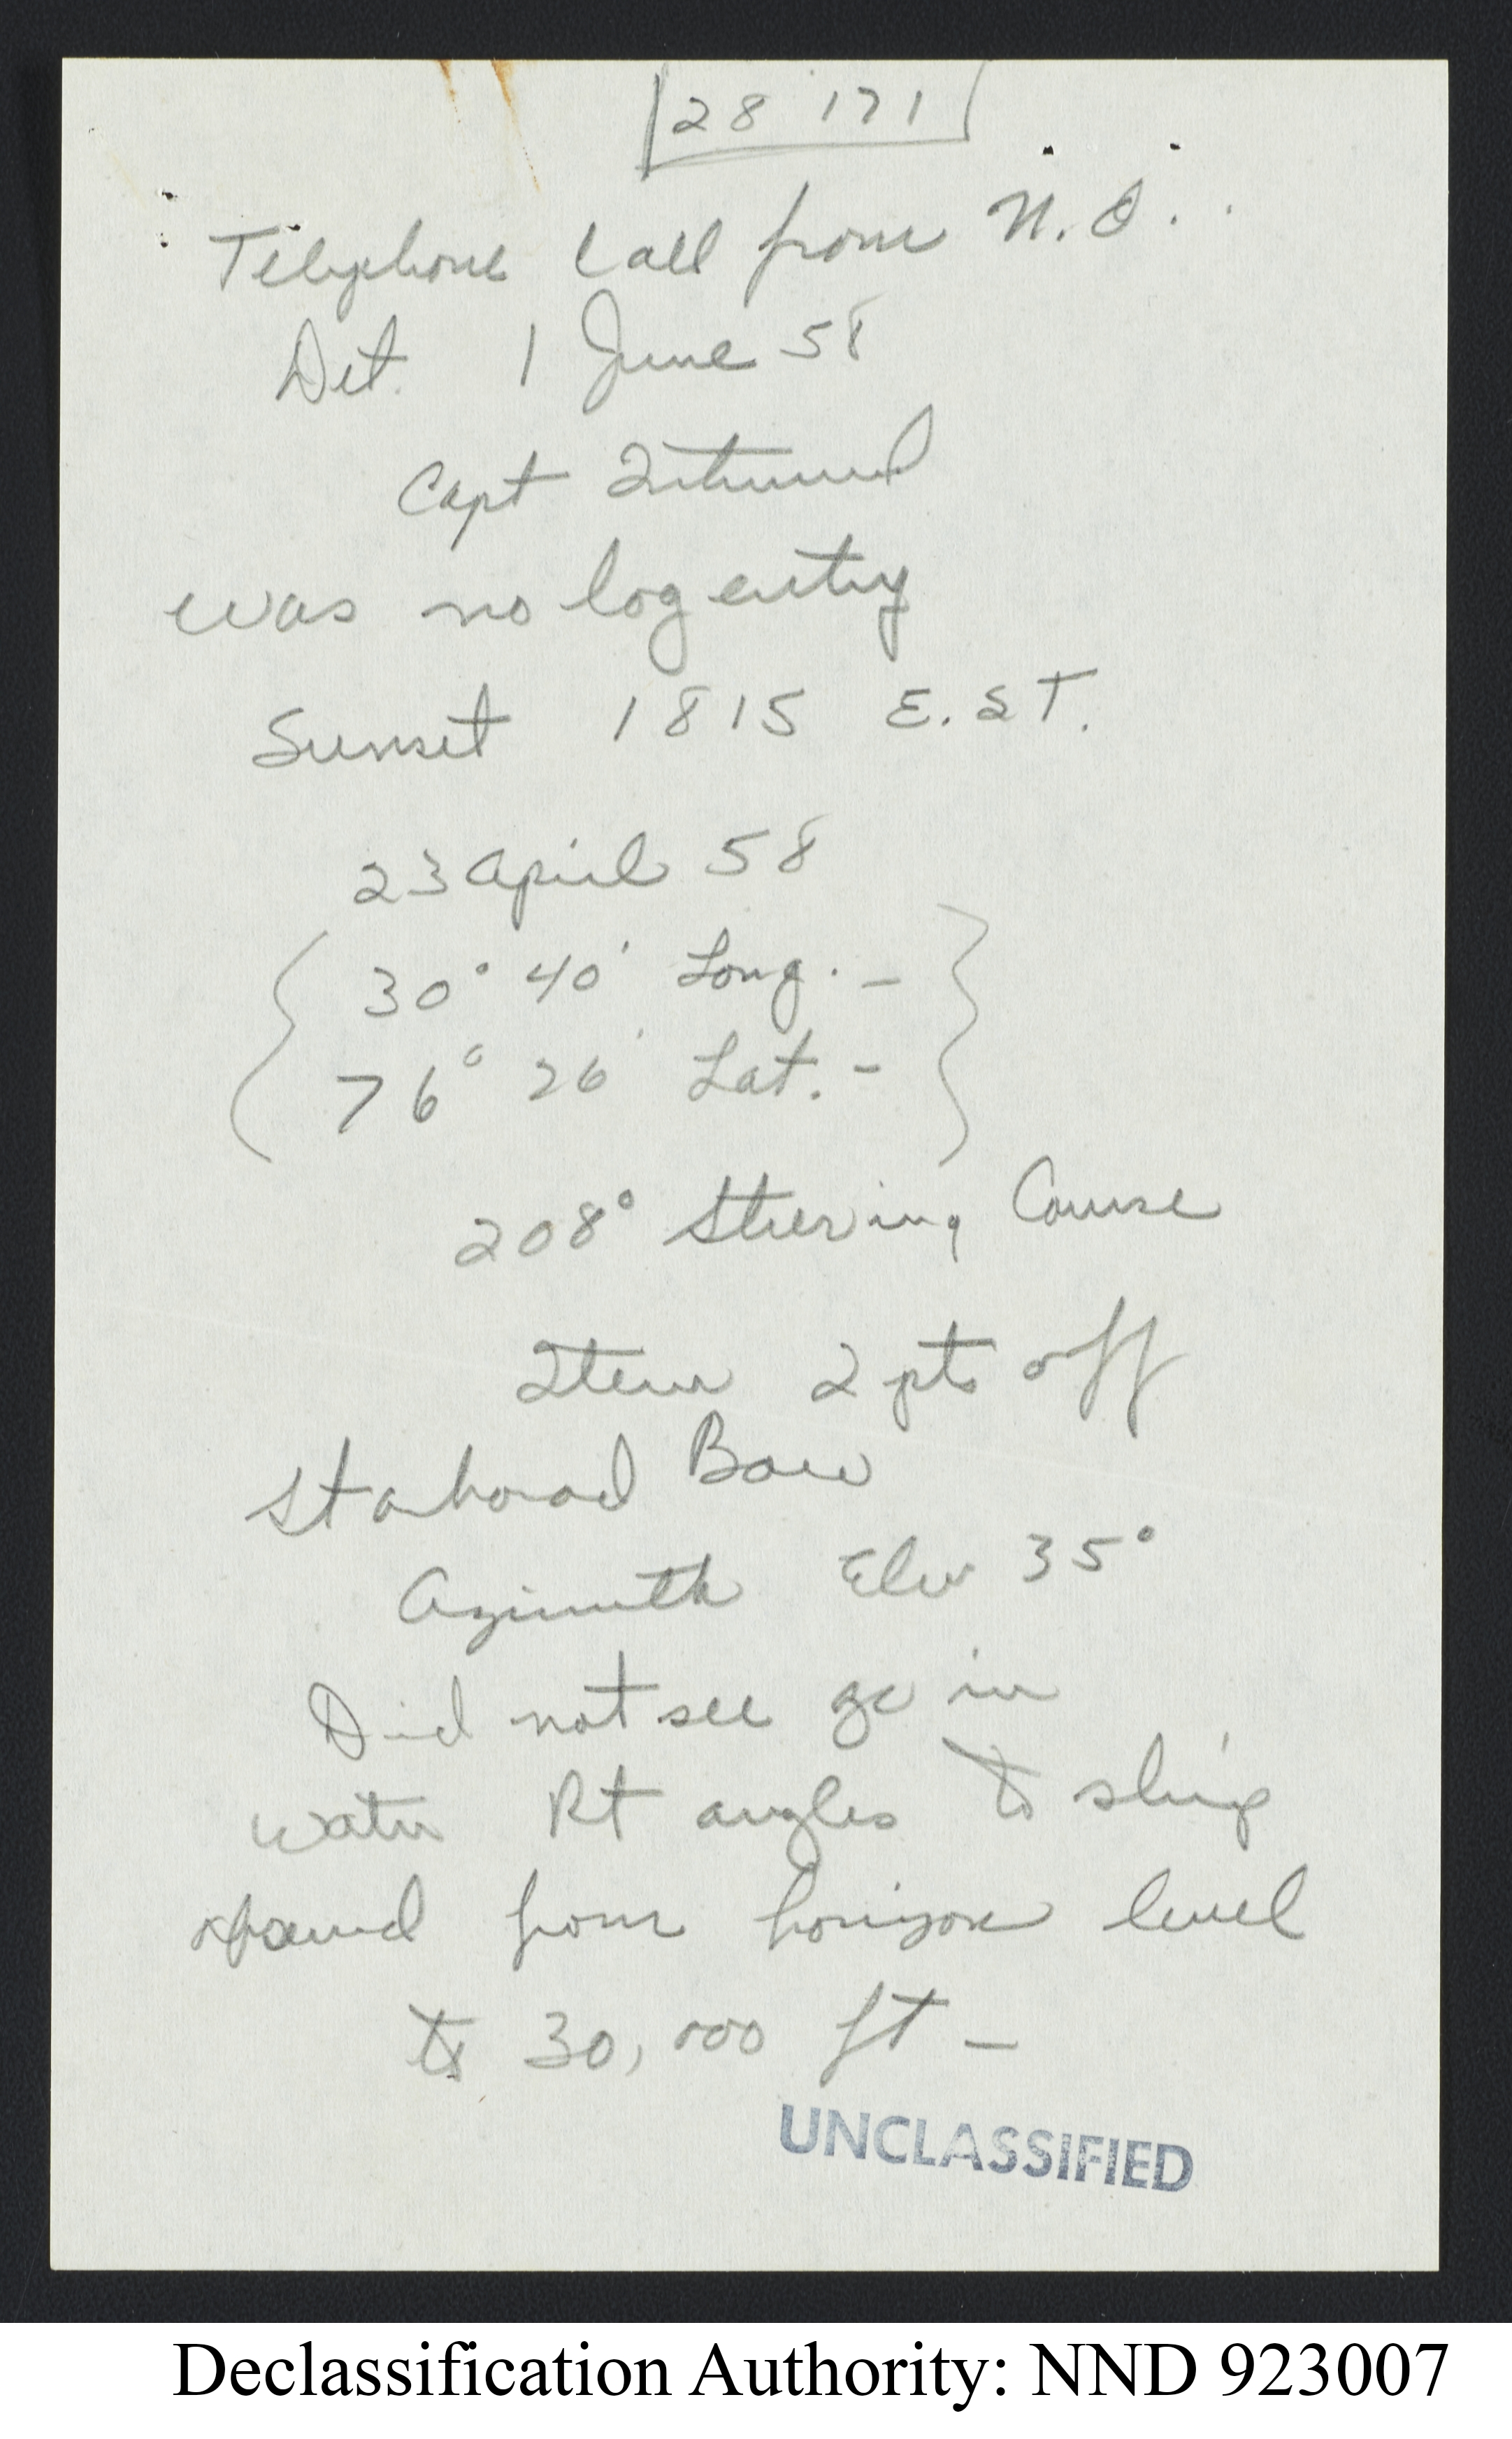 28 171
Telephone Call from N.O.
Det. 1 June 58
Capt
was no log entry
Sunset 1815 E.S.T.
23 April 58
30° 40' Long. -
76° 26' Lat. -
208° Steering Course
Item 2 pts off
Starboard Bow
Azimuth Elev 35°
Did not see go in
water Rt angles to ship
from horizon level
to 30,000 ft -
UNCLASSIFIED
Declassification Authority: NND 923007